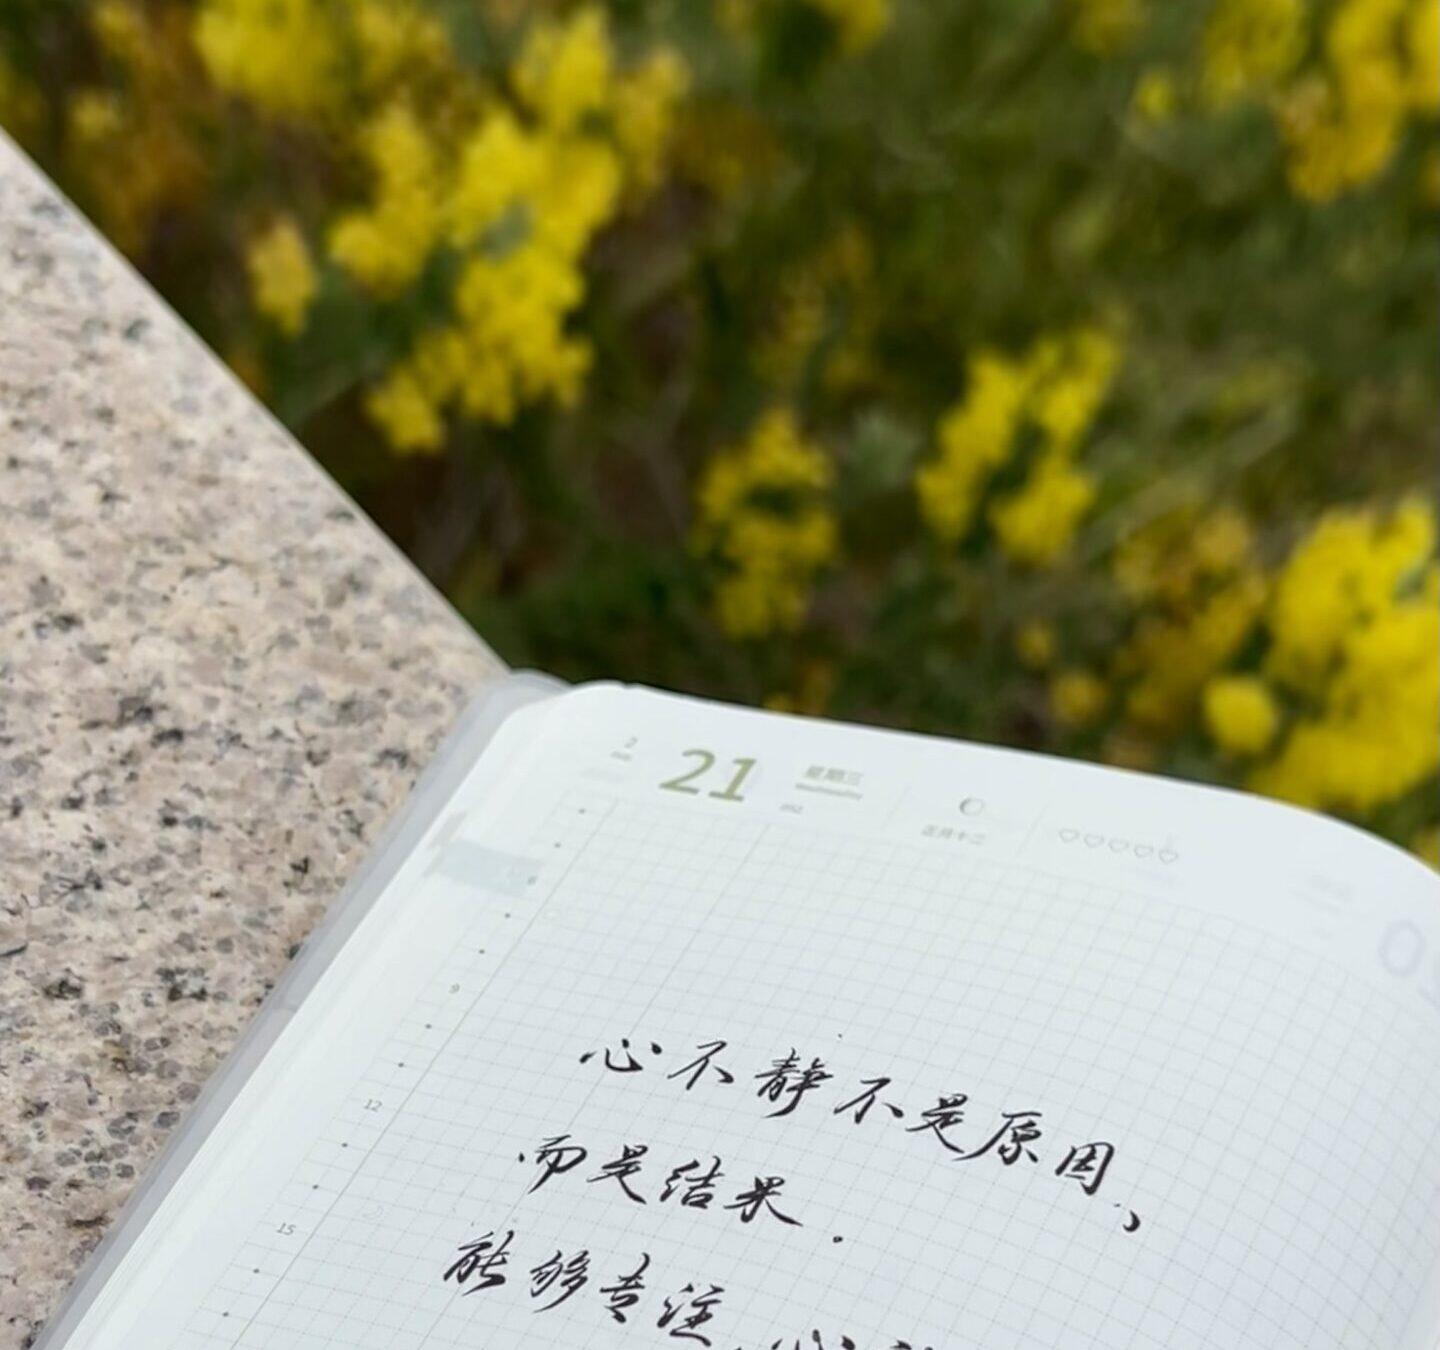 2
21 星期三
正月十二
9
12
15
心不静不是原因，
而是结果.
能够专注